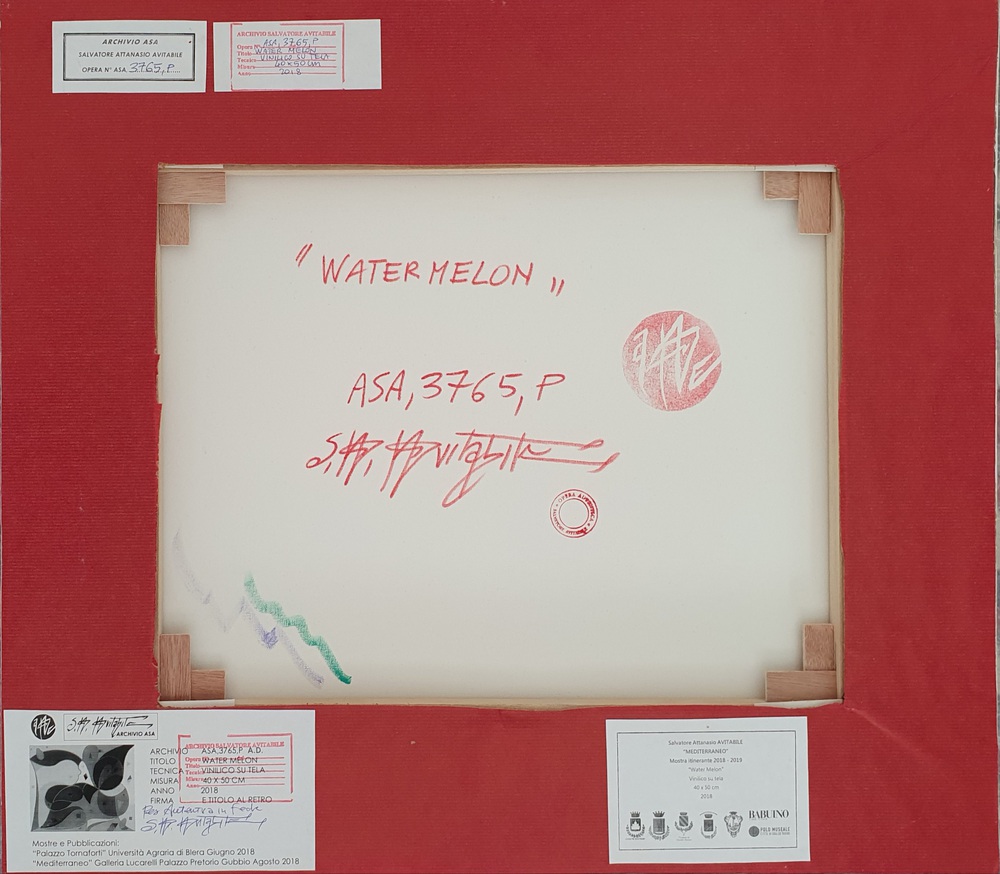 ARCHIVIO ASA
SALVATORE ATTANASIO AVITABILE
OPERA N° ASA 3765, P
ARCHIVIO SALVATORE AVITABILE
Opera N° ASA, 3765, P
Titolo WATER MELON
Tecnica VINILICO SU TELA
Misura 40 x 50 cm
Anno 2018
" WATER MELON "
ASA, 3765, P
S. A. Avitabile
S. A. Avitabile
ARCHIVIO ASA
ARCHIVIO ASA,3765,P A.D.
TITOLO WATER MELON
TECNICA VINILICO SU TELA
MISURA 40 X 50 CM
ANNO 2018
FIRMA E TITOLO AL RETRO
ARCHIVIO SALVATORE AVITABILE
Per Autentica in Fede
S. A. Avitabile
Mostre e Pubblicazioni:
"Palazzo Tornaforti" Università Agraria di Blera Giugno 2018
"Mediterraneo" Galleria Lucarelli Palazzo Pretorio Gubbio Agosto 2018
Salvatore Attanasio AVITABILE
"MEDITERRANEO"
Mostra Itinerante 2018 - 2019
"Water Melon"
Vinilico su tela
40 x 50 cm
2018
BABUINO
POLO MUSEALE